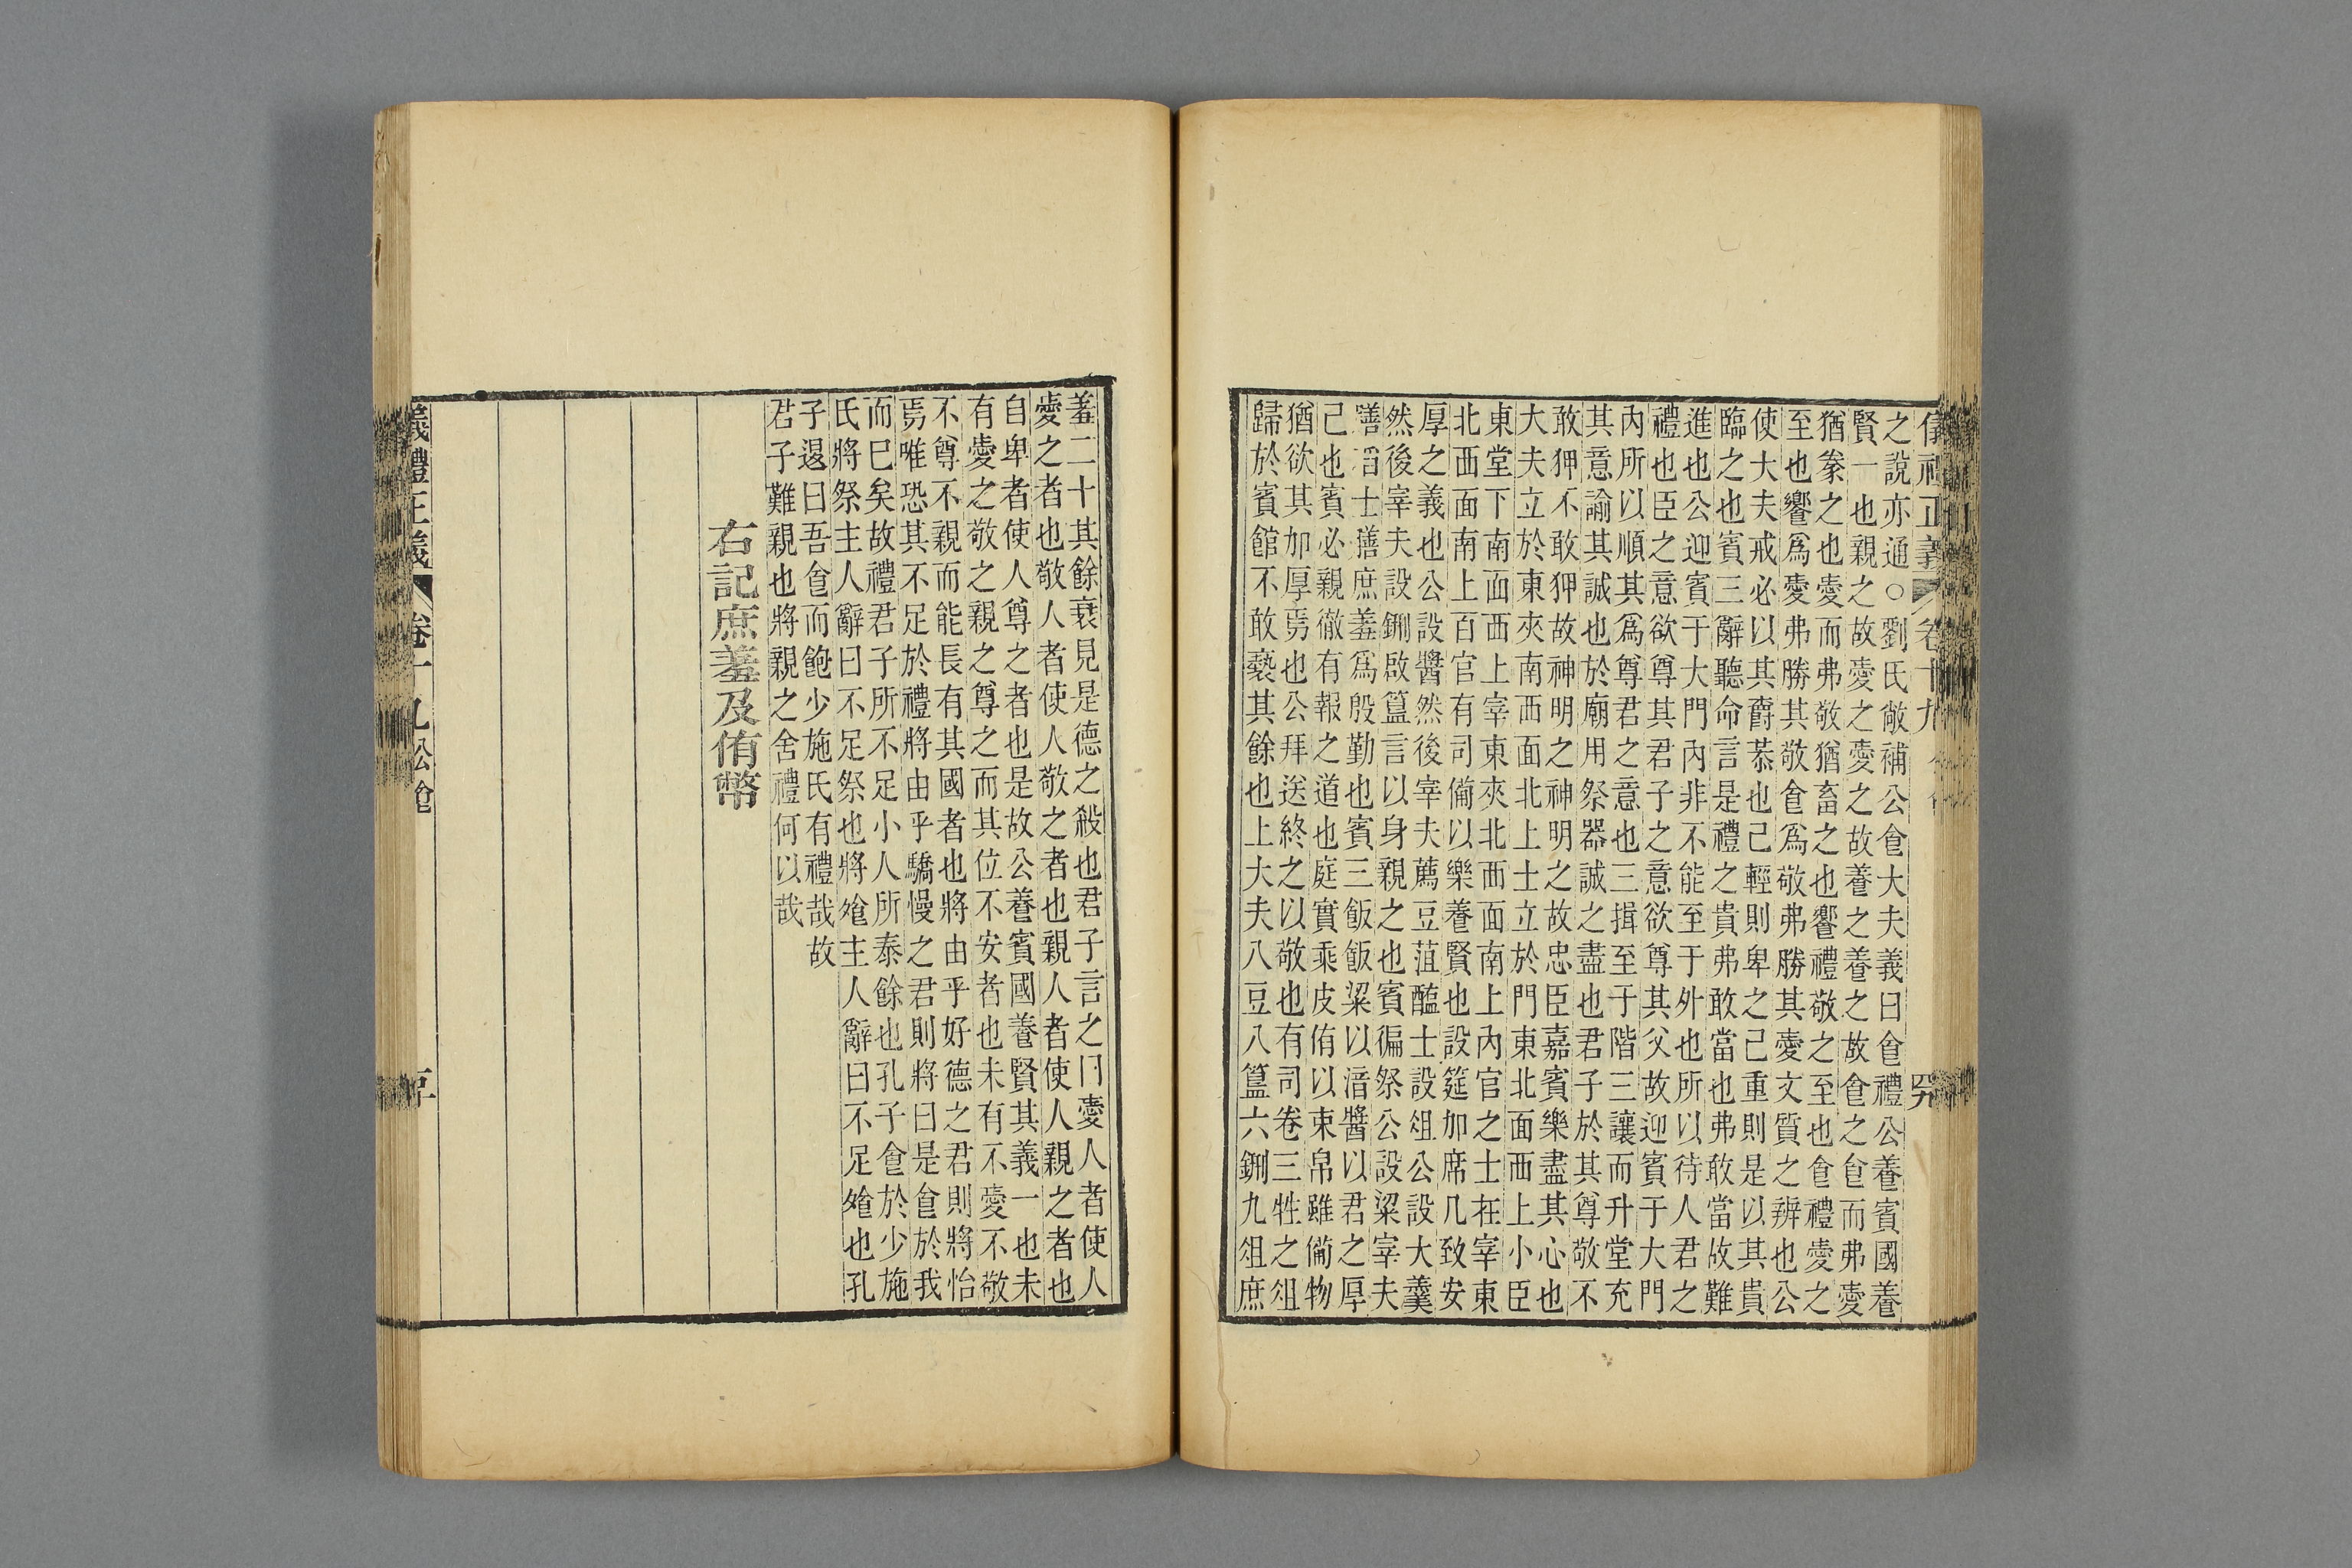 儀禮正義 卷十九
之說亦通○劉氏敞補公食大夫義曰食禮公養賓國養
賢一也親之故愛之愛之故養之養之故食之食而弗愛
猶豢之也愛而弗敬猶畜之也饗禮敬之至也食禮愛之
至也饗爲愛弗勝其敬食爲敬弗勝其愛文質之辨也公
使大夫戒必以其爵恭也己輕則卑之己重則是以其貴
臨之也賓三辭聽命言是禮之貴弗敢當也弗敢當故難
進也公迎賓于大門內非不能至于外也所以待人君之
禮也臣之意欲尊其君子之意欲尊其父故迎賓于大門
內所以順其爲尊君之意也三揖至于階三讓而升堂充
其意諭其誠也於廟用祭器誠之盡也君子於其尊敬不
敢狎不敢狎故神明之神明之故忠臣嘉賓樂盡其心也
大夫立於東夾南西面北上士立於門東北面西上小臣
東堂下南面西上宰東夾北西面南上內官之士在宰東
北西面南上百官有司備以樂養賢也設筵加席几致安
厚之義也公設醬然後宰夫薦豆菹醢士設俎公設大羹
然後宰夫設鉶啟簋言以身親之也賓徧祭公設粱宰夫
膳稻士膳庶羞爲殷勤也賓三飯飯粱以湆醬以君之厚
己也賓必親徹有報之道也庭實乘皮侑以束帛雖備物
猶欲其加厚焉也公拜送終之以敬也有司卷三牲之俎
歸於賓館不敢褻其餘也上大夫八豆八簋六鉶九俎庶
羞二十其餘衰見是德之殺也君子言之曰愛人者使人
愛之者也敬人者使人敬之者也親人者使人親之者也
自卑者使人尊之者也是故公養賓國養賢其義一也未
有愛之敬之親之尊之而其位不安者也未有不愛不敬
不尊不親而能長有其國者也將由乎好德之君則將怡
焉唯恐其不足於禮將由乎驕慢之君則將曰是食於我
而已矣故禮君子所不足小人所泰餘也孔子食於少施
氏將祭主人辭曰不足祭也將飧主人辭曰不足飧也孔
子退曰吾食而飽少施氏有禮哉故
君子難親也將親之舍禮何以哉
右記庶羞及侑幣
儀禮正義 卷十九